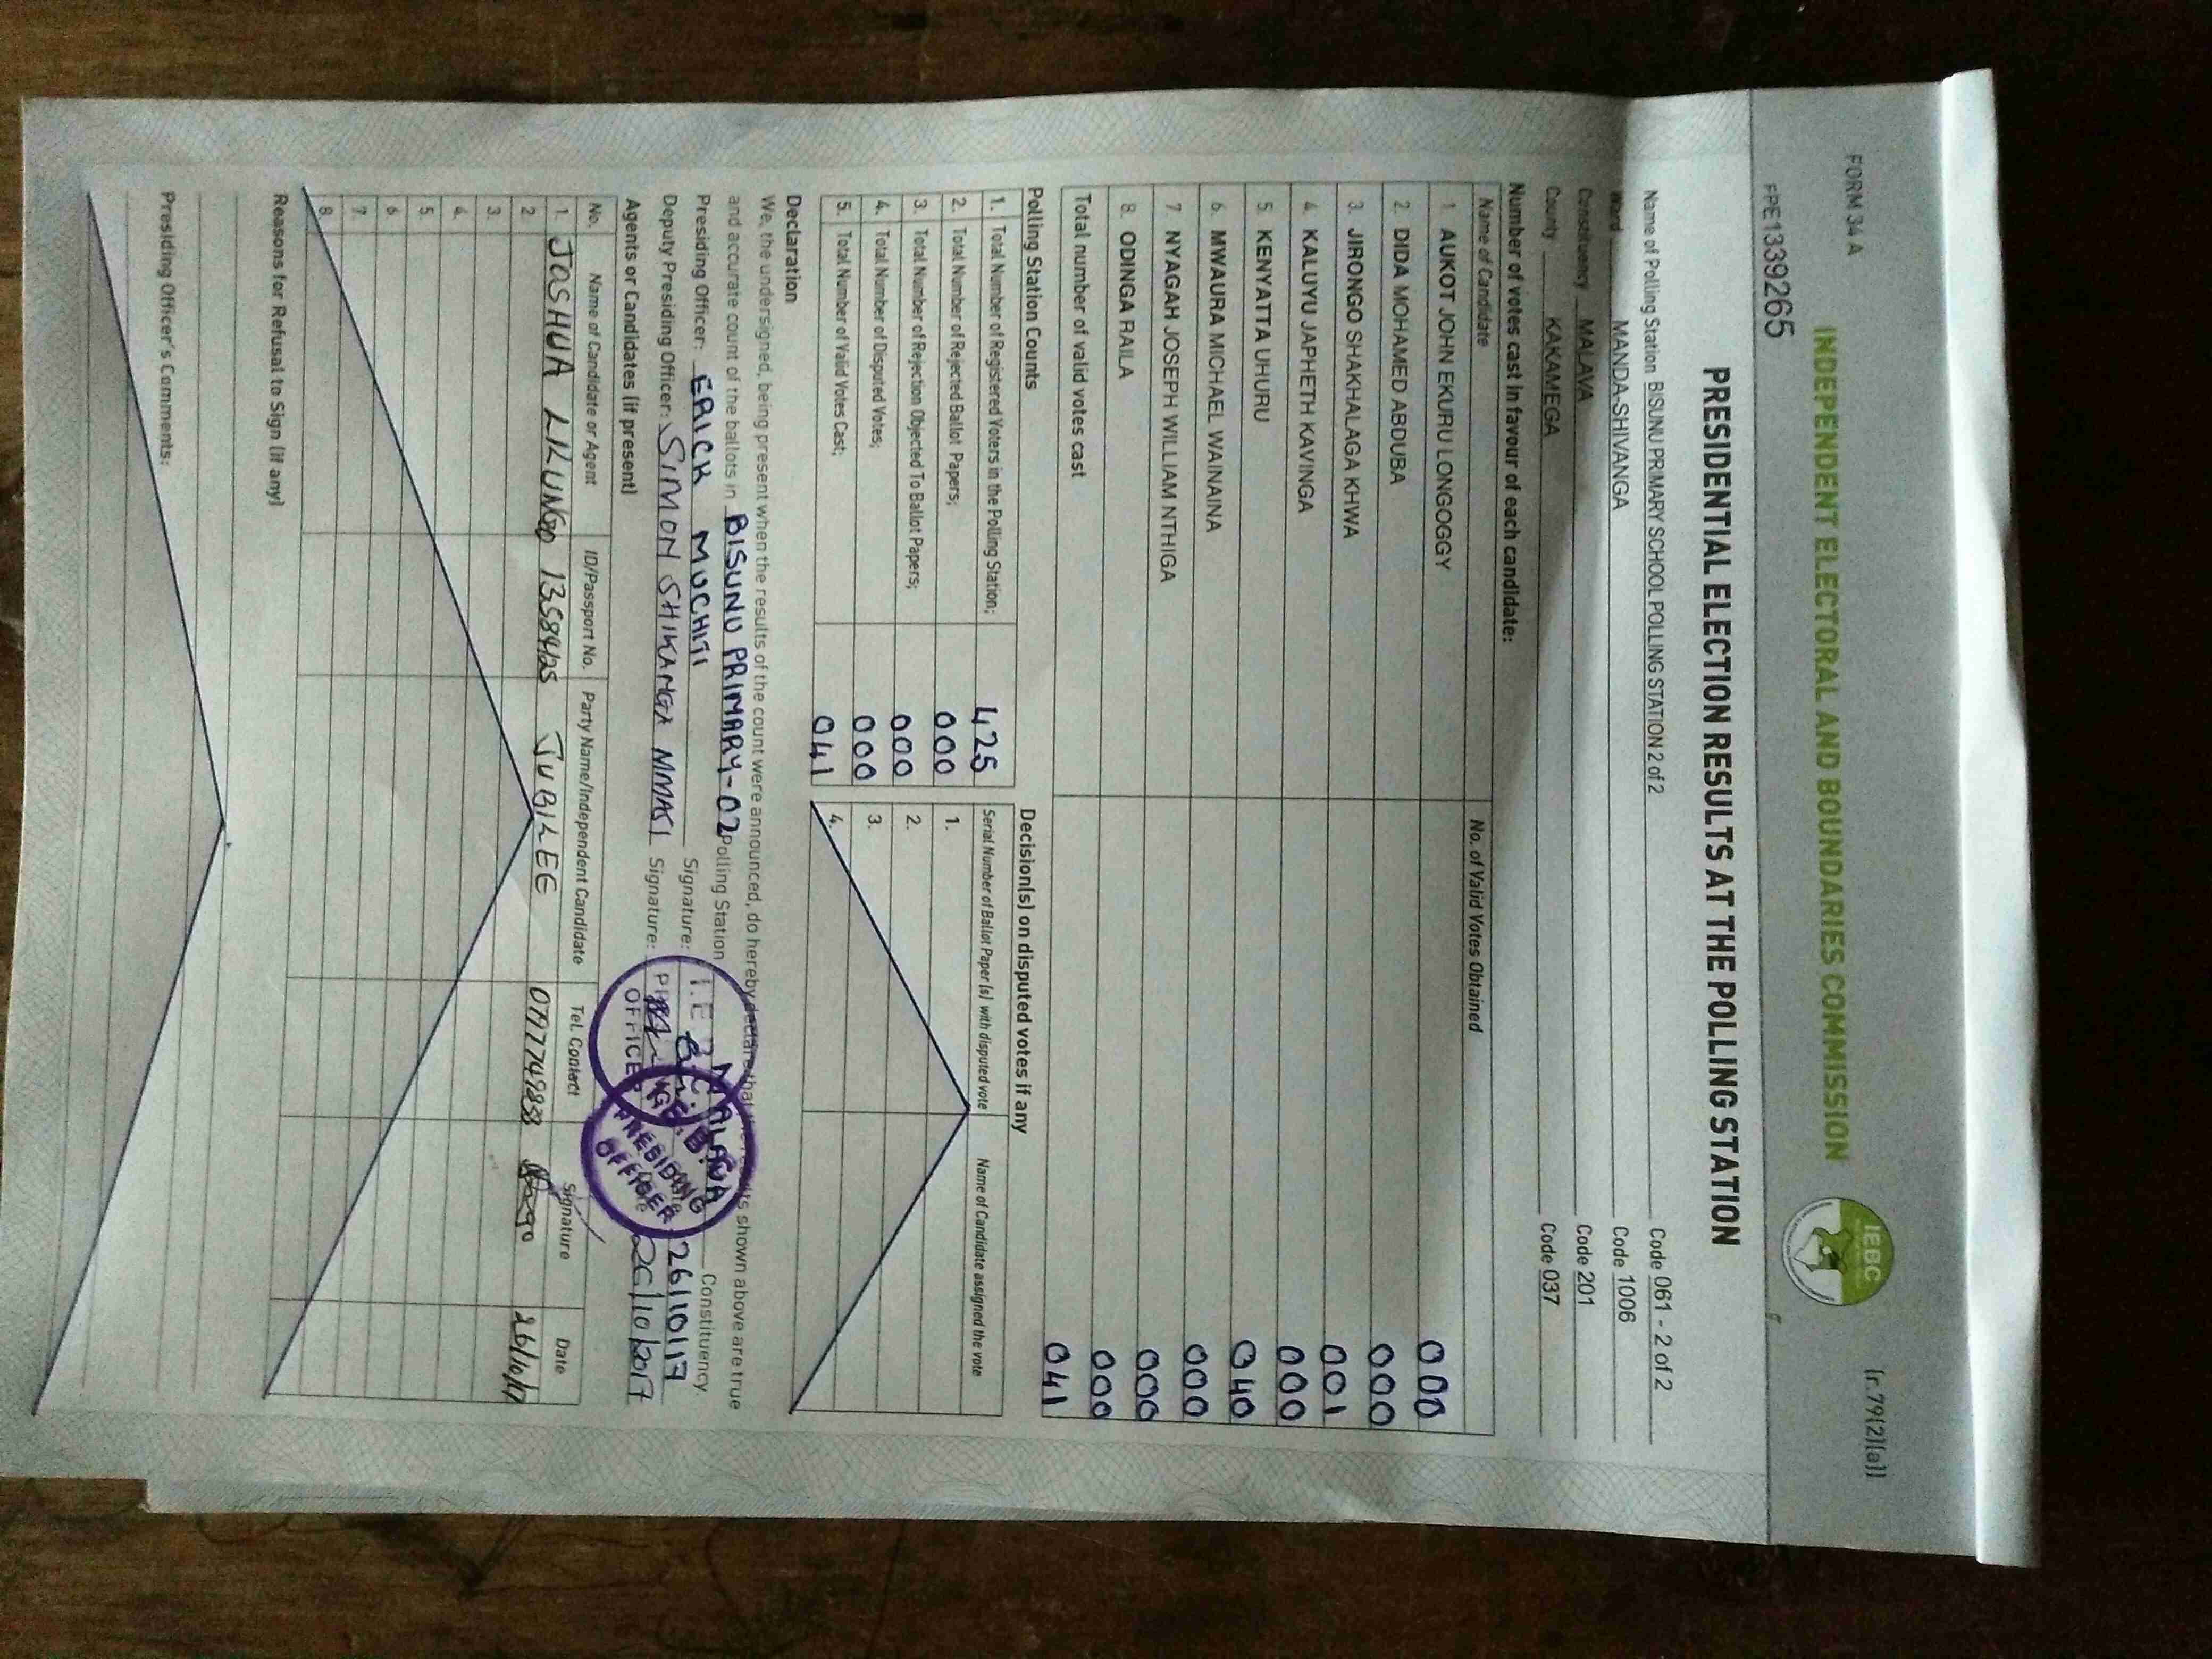 FORM 34 A
(r.79(2)(a))
INDEPENDENT ELECTORAL AND BOUNDARIES COMMISSION
IEBC
PE1339265
PRESIDENTIAL ELECTION RESULTS AT THE POLLING STATION
Name of Polling Station BISUNU PRIMARY SCHOOL POLLING STATION 2 of 2 Code 061 - 2 of 2
Ward MANDA-SHIVANGA Code 1006
Constituency MALAVA Code 201
County KAKAMEGA Code 037
Number of votes cast in favour of each candidate:
Name of Candidate No. of Valid Votes Obtained
1. AUKOT JOHN EKURU LONGOGGY 000
2. DIDA MOHAMED ABDUBA 000
3. JIRONGO SHAKHALAGA KHWA 001
4. KALUYU JAPHETH KAVINGA 000
5. KENYATTA UHURU 040
6. MWAURA MICHAEL WAINAINA 000
7. NYAGAH JOSEPH WILLIAM NTHIGA 000
8. ODINGA RAILA 000
Total number of valid votes cast 041
Polling Station Counts
1. Total Number of Registered Voters in the Polling Station; 425
2. Total Number of Rejected Ballot Papers; 000
3. Total Number of Rejection Objected To Ballot Papers; 000
4. Total Number of Disputed Votes; 000
5. Total Number of Valid Votes Cast; 041
Decision(s) on disputed votes if any
Serial Number of Ballot Paper (s) with disputed vote Name of Candidate assigned the vote
1.
2.
3.
4.
Declaration
We, the undersigned, being present when the results of the count were announced, do hereby declare that the results shown above are true
and accurate count of the ballots in BISUNU PRIMARY-02 Polling Station MALAVA Constituency
Presiding Officer: ERICK MUCHITI Signature: 26/10/17
Deputy Presiding Officer: SIMON SHIKANGA MMASI Signature: 26/10/2017
I.E.B.C.
PRESIDING
OFFICER
Agents or Candidates (if present)
No. Name of Candidate or Agent ID/Passport No. Party Name/Independent Candidate Tel. Contact Signature Date
1. JOSHUA LIKUNGO 13584125 JUBILEE 26/10/17
2.
3.
4.
5.
6.
7.
8.
Reasons for Refusal to Sign (if any)
Presiding Officer's Comments: